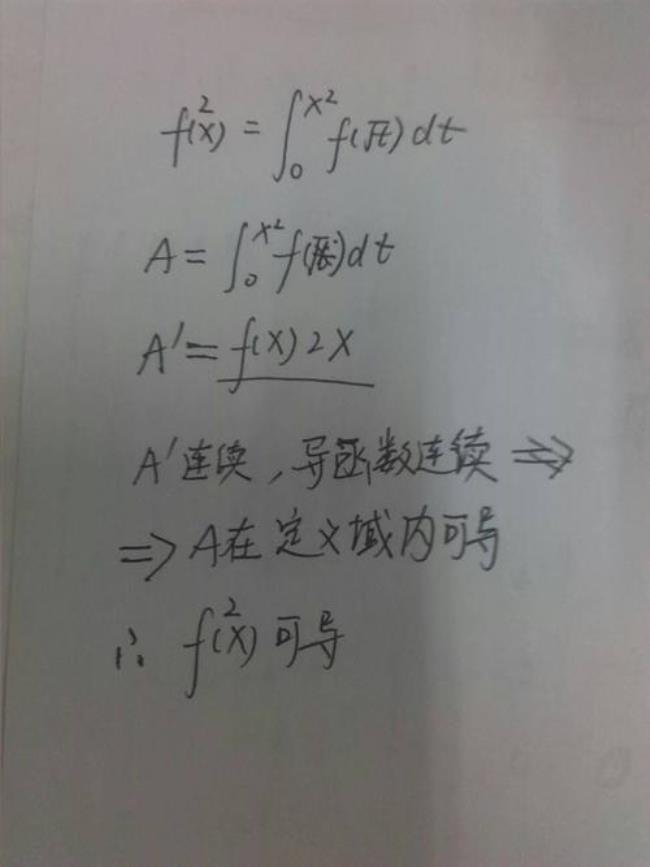 f²(x) = ∫₀^{x²} f(√t) dt
A = ∫₀^{x²} f(√t) dt
A' = f(x) 2x
A'连续，导函数连续 ⇒
⇒ A在定义域内可导
∴ f²(x) 可导